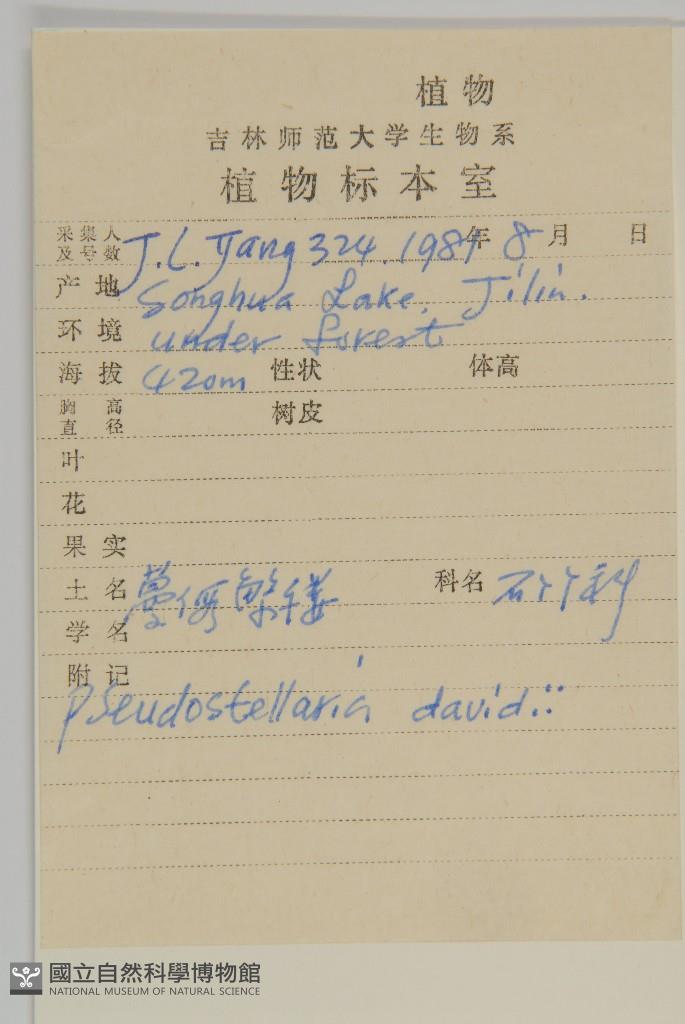 植物
吉林师范大学生物系
植物标本室
采集人及号数 J. L. Yang 324. 1981年 8月 日
产地 Songhua Lake. Jilin.
环境 under forest
海拔 420m 性状 体高
胸高直径 树皮
叶
花
果实
土名 蔓假繁缕 科名 石竹科
学名
附记
Pseudostellaria davidii
國立自然科學博物館
NATIONAL MUSEUM OF NATURAL SCIENCE